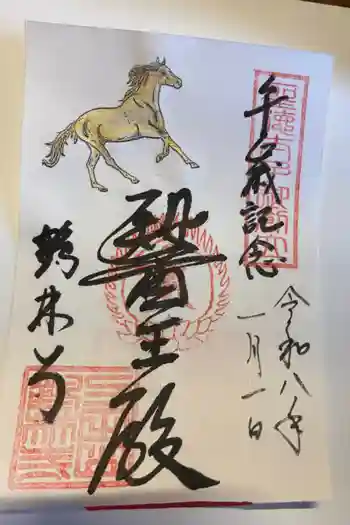 午歳記念
令和八年
一月一日
醫王殿
鶴林寺